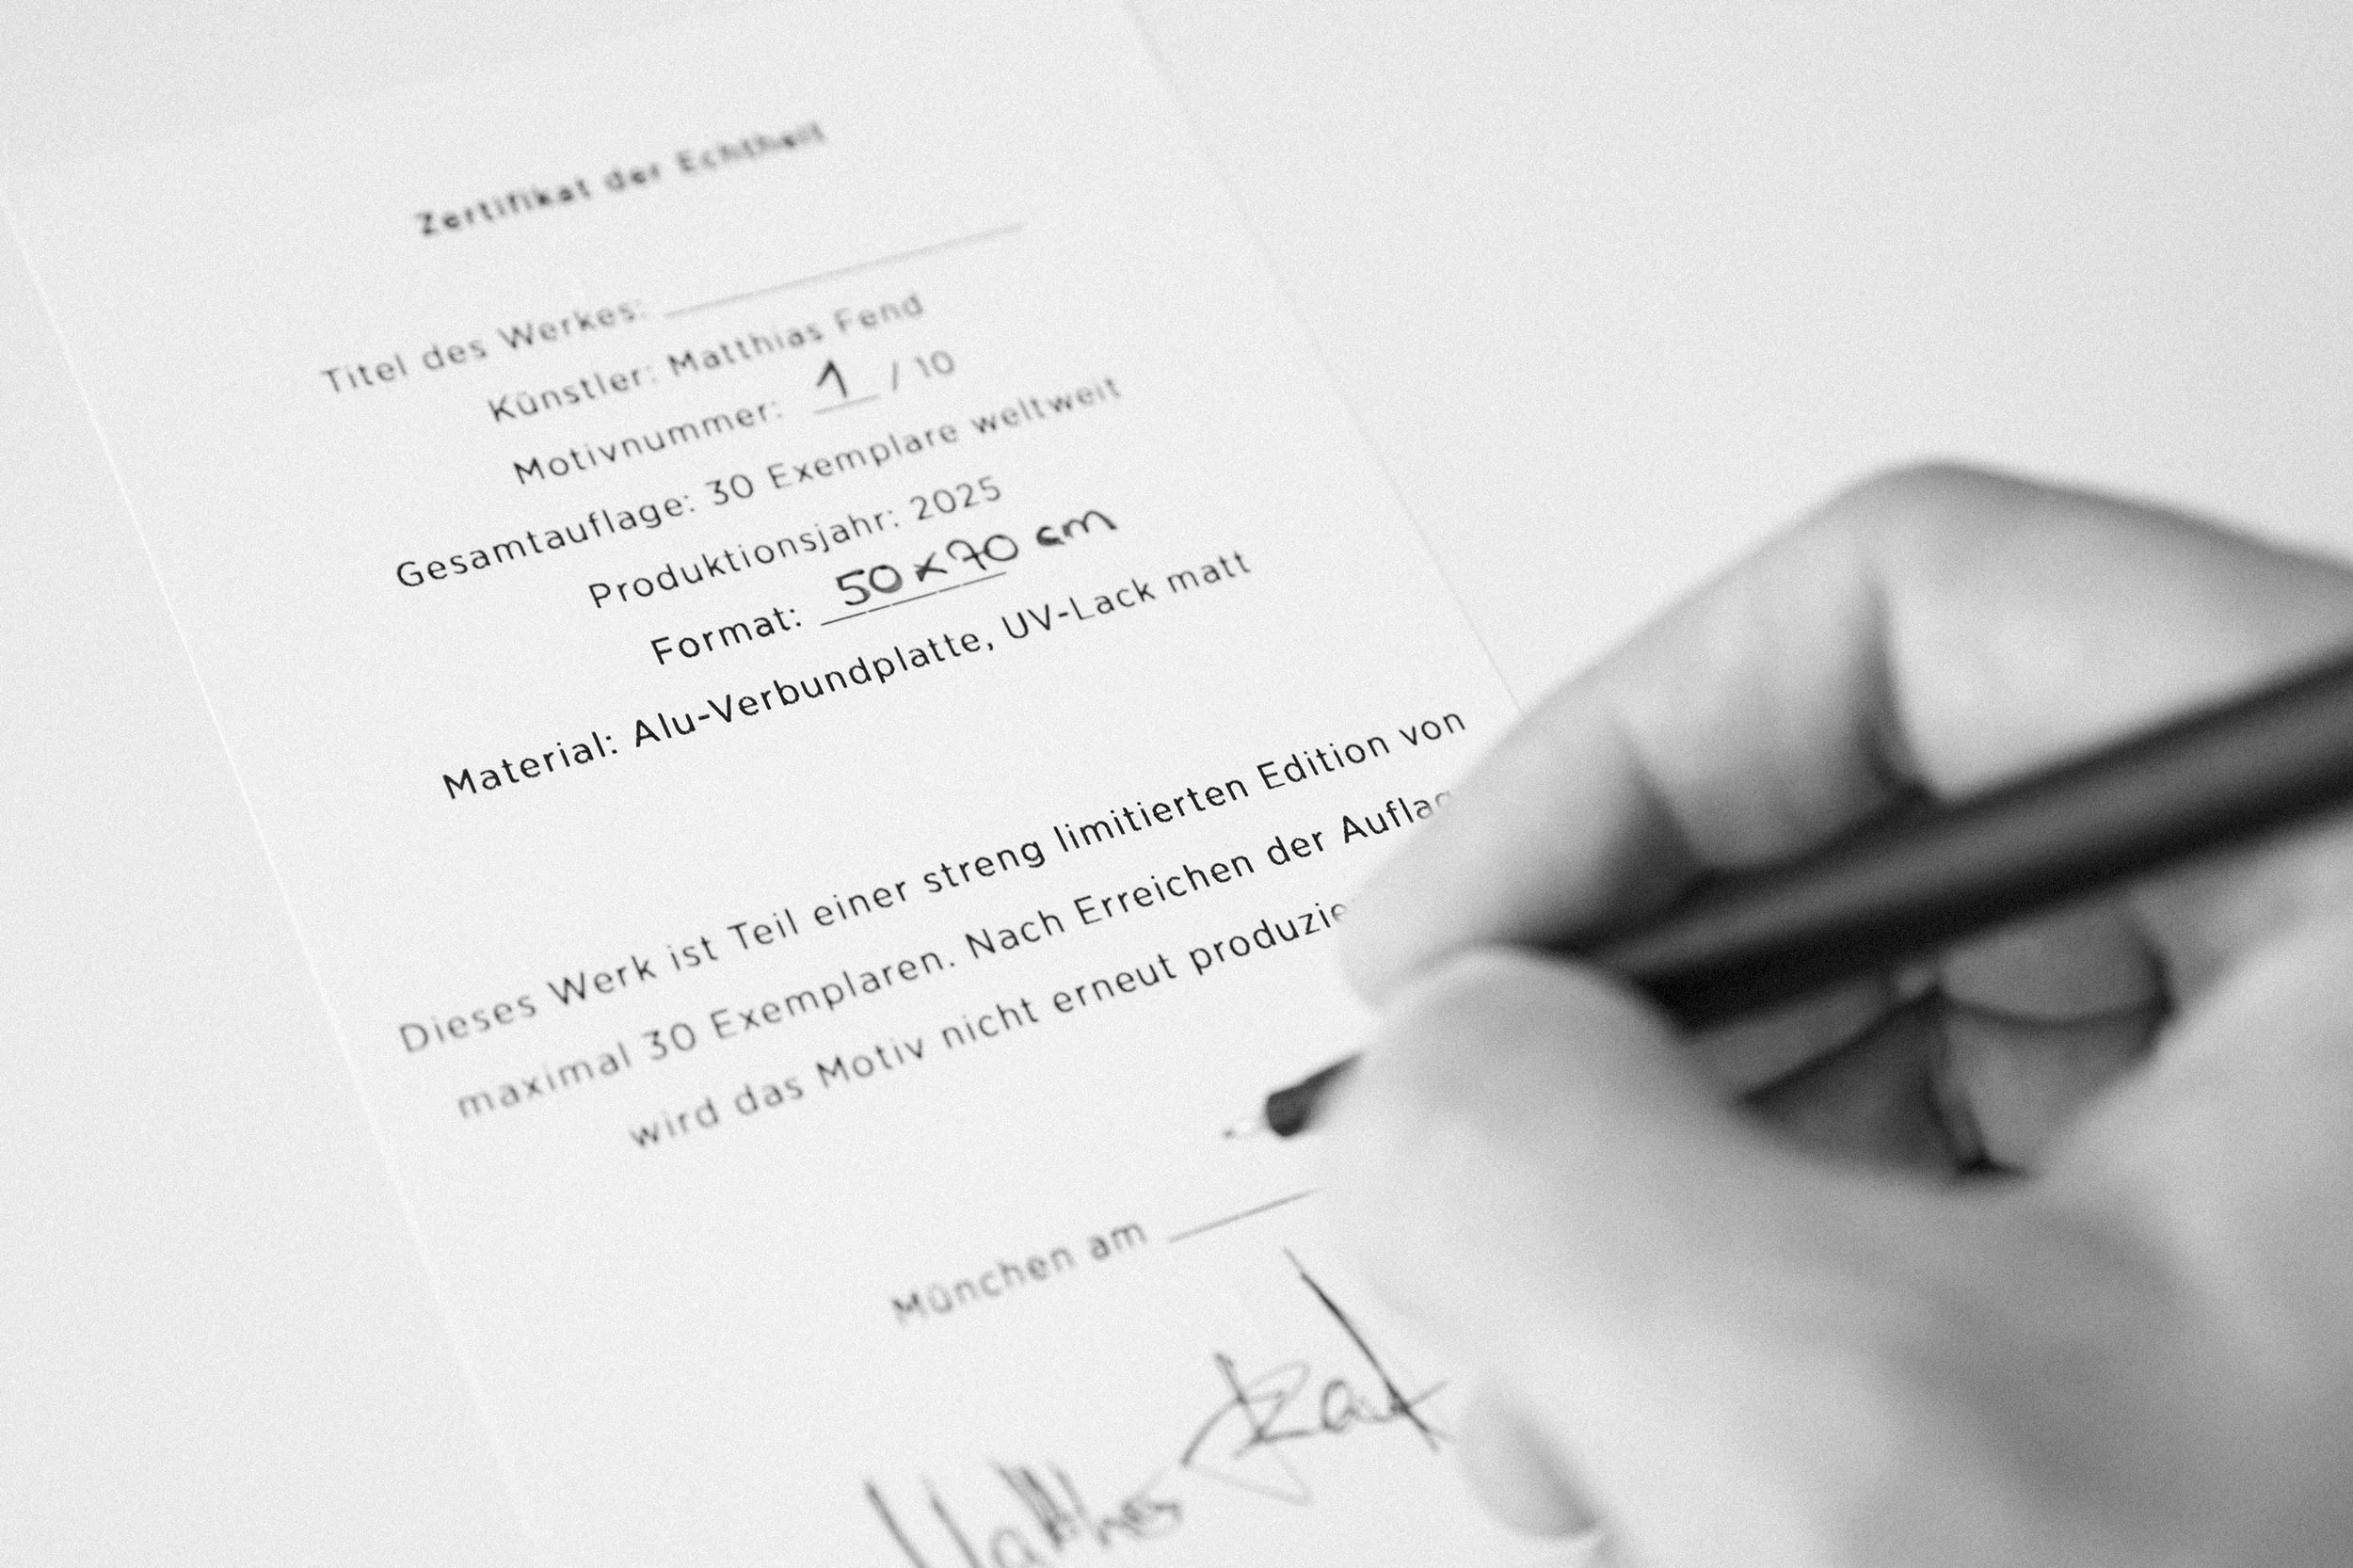 Zertifikat der Echtheit
Titel des Werkes:
Künstler: Matthias Fend
Motivnummer: 1 / 10
Gesamtauflage: 30 Exemplare weltweit
Produktionsjahr: 2025
Format: 50 x 70 cm
Material: Alu-Verbundplatte, UV-Lack matt
Dieses Werk ist Teil einer streng limitierten Edition von
maximal 30 Exemplaren. Nach Erreichen der Auflag
wird das Motiv nicht erneut produzie
München am
Matthias